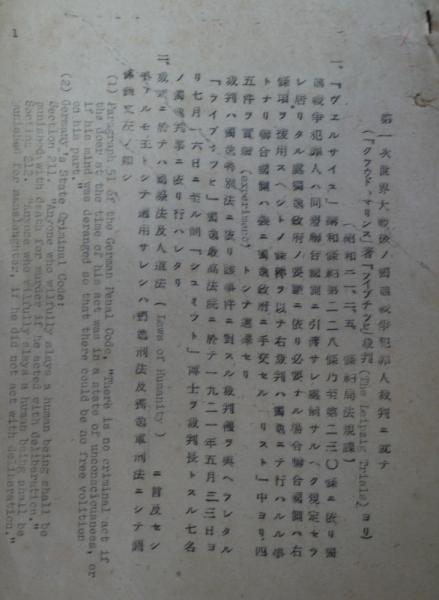 1
第一次世界大戦後ノ獨逸戦争犯罪人裁判ニ就テ
(「クラウド・マリンス」著「ライプチッヒ」裁判 (The Leipzig Trials) ヨリ)
(昭和二一、二、五 條約局法規課)
一、「ヴェルサイユ」媾和條約第二二八條乃至第二三〇條ニ依リ獨
逸戦争犯罪人ハ同盟聯合國側ニ引渡サレ處刑サルベク規定セラ
レ居リタル處獨逸政府ノ要請ニ依リ必要ナル場合聯合國側ハ右
條項ヲ援用スベシトノ條件ヲ以テ右裁判ハ獨逸ニテ行ハルル事
トナリ聯合國側ハ義ニ獨逸政府ニ手交セル「リスト」中ヨリ四
五件ヲ實驗 (experiment) トシテ選ビセリ
裁判ハ獨逸特別法ニ依リ該事件ニ對スル裁判權ヲ與ヘラレタル
「ライプチッヒ」獨逸最高法院ニ於テ一九二一年五月二三日ヨ
リ七月一六日ニ至ル間「シュミット」博士ヲ裁判長トスル七名
ノ獨逸判事ニ依リ行ハレタリ
二、裁判ニ於テハ國際法及人道法 (Laws of Humanity) ニ言及セシ
事アルモ主トシテ適用サレシハ獨逸刑法及獨逸軍刑法ニシテ關
係條文左ノ如シ
(1) Paragraph 51 of the German Penal Code, "There is no criminal act if
the doer at the time of his act was in a state of unconsciousness, or
if his mind was deranged so that there could be no free volition
on his part."
(2) Germany's State Criminal Code:
Section 211. "Anyone who wilfully slays a human being shall be
punished with death for murder if he acted with deliberation."
Section 212. "Anyone who wilfully slays a human being shall be
punished for manslaughter, if he did not act with deliberation."